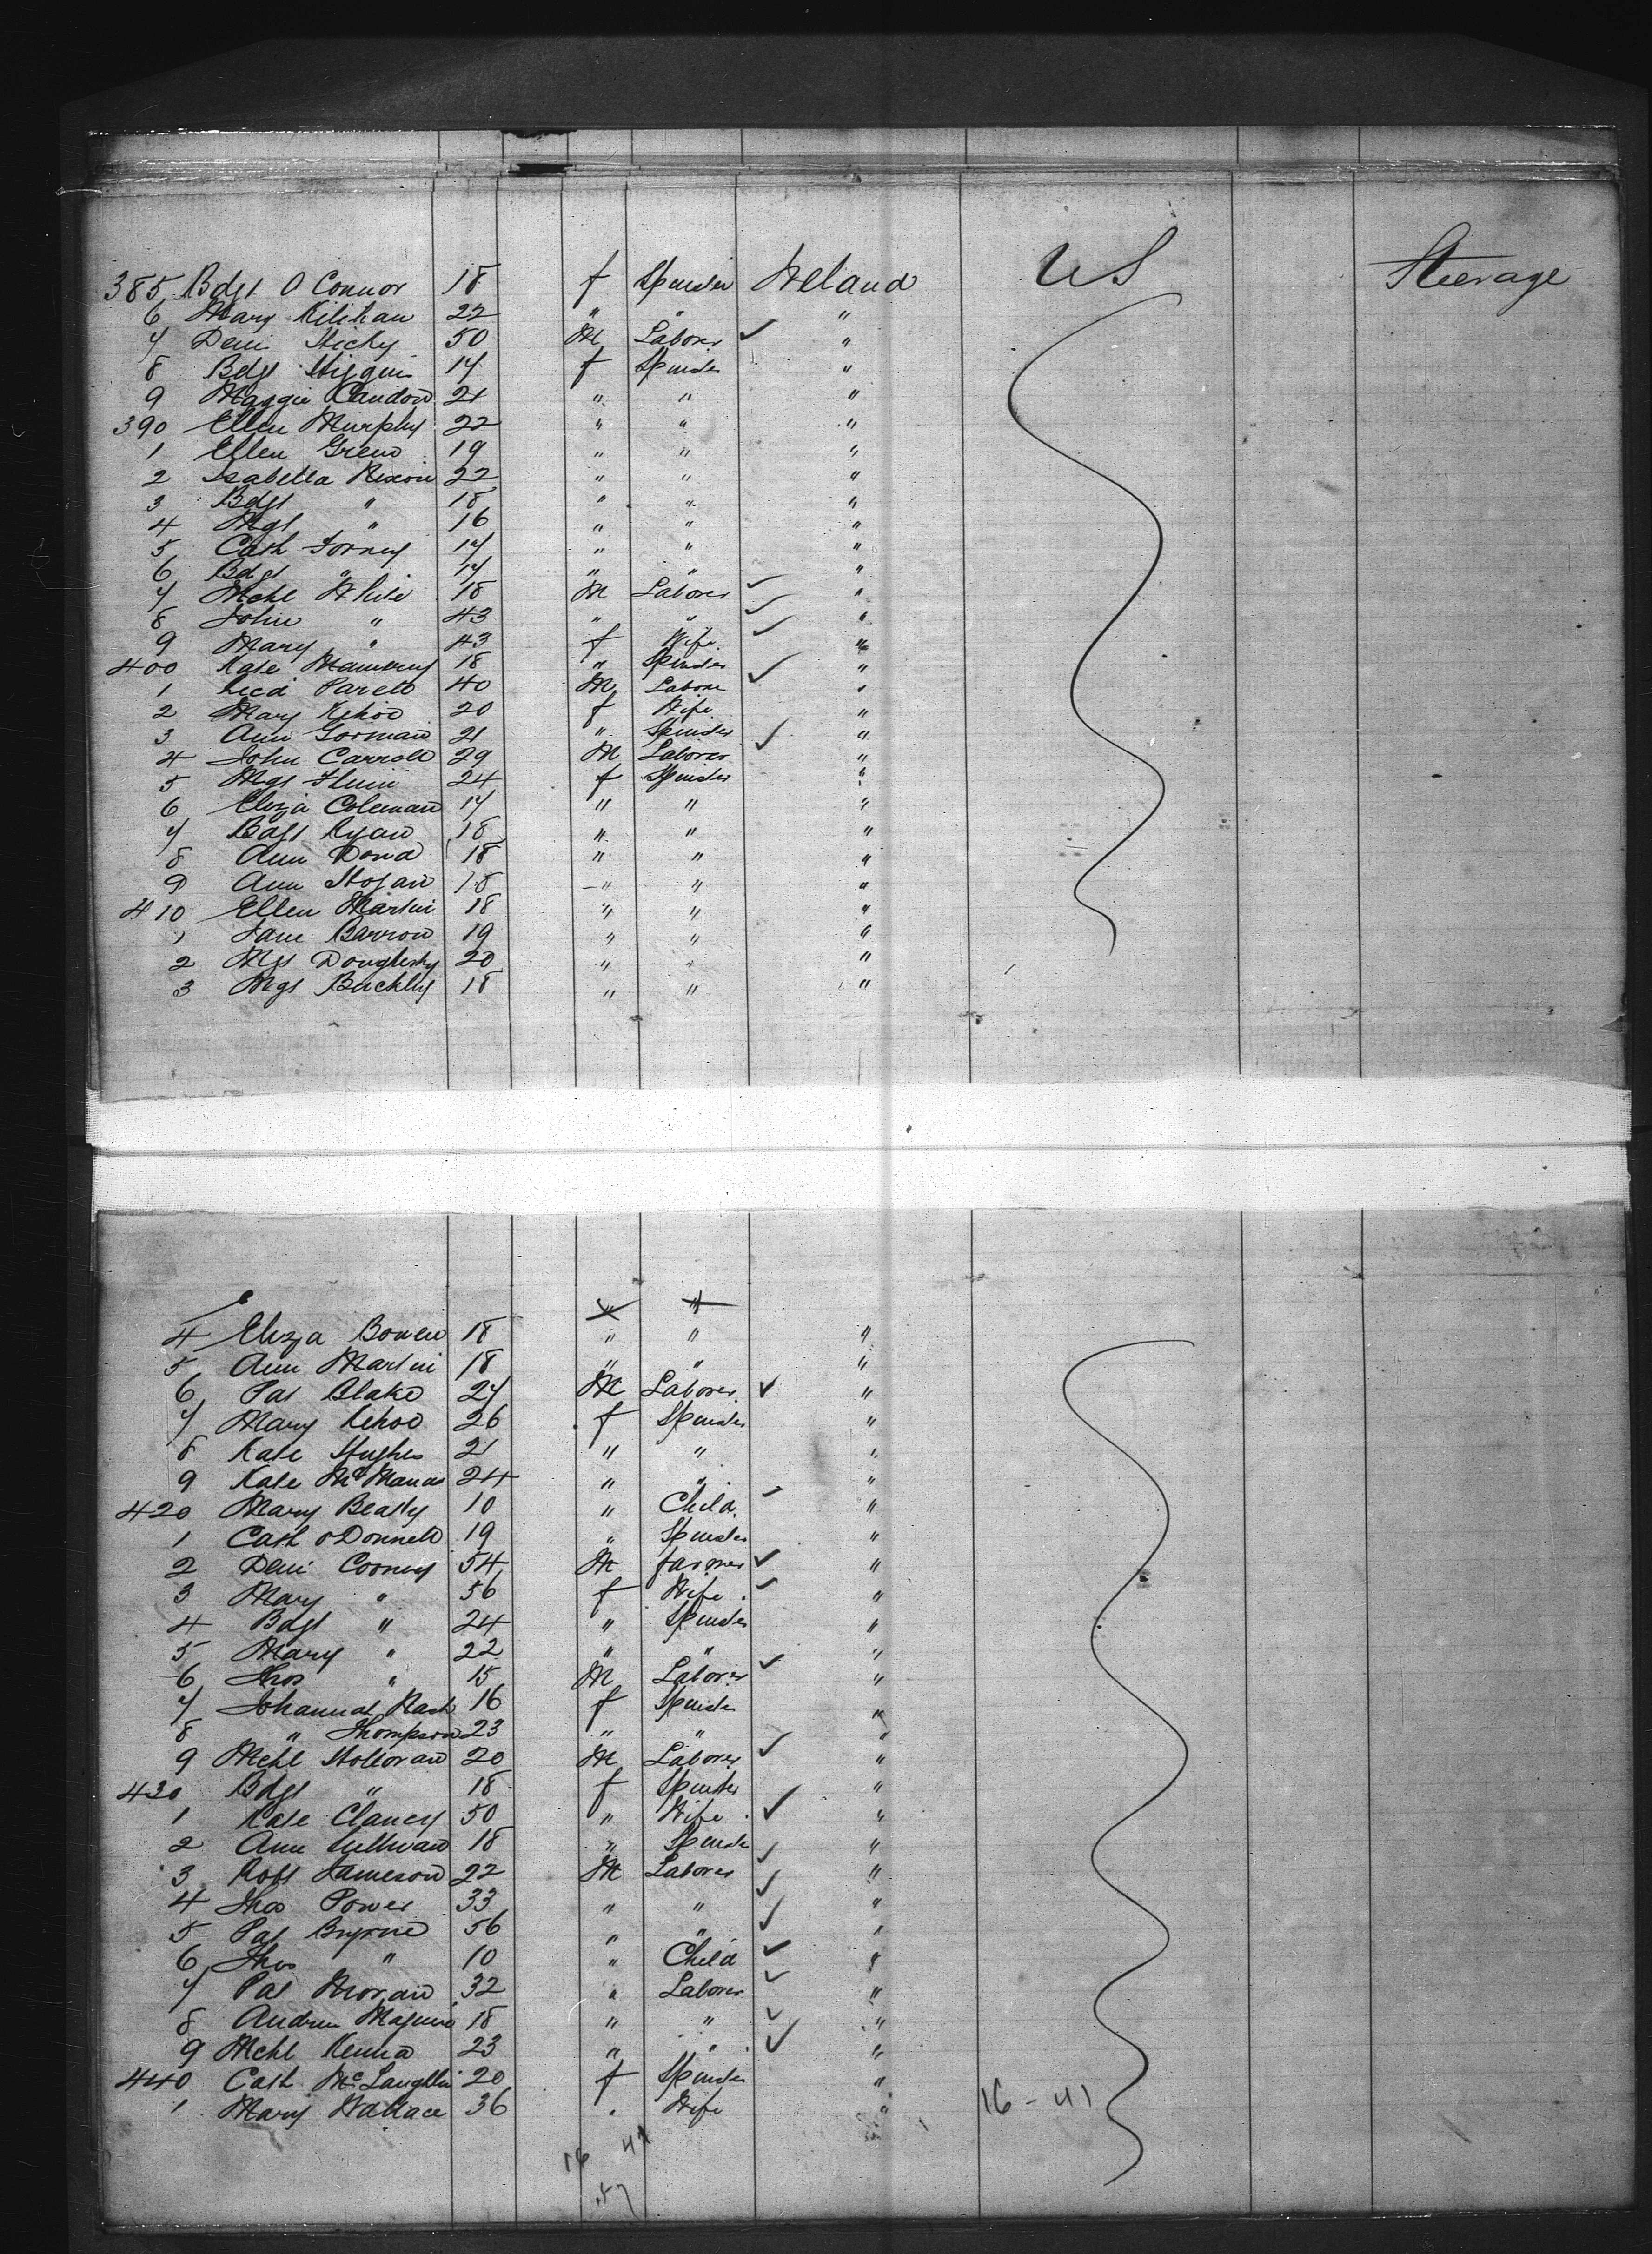 385 Bdgt O Connor 18 f Spinster Ireland US Steerage
6 Mary 22 " " "
7 Deni Hickey 50 M Laborer ✓ "
8 Bdgt Higgins 17 f Spinster "
9 Maggie Candon 21 " " "
390 Ellen Murphy 22 " " "
1 Ellen Green 19 " " "
2 Isabella Nixon 22 " " "
3 Bdgt " 18 " " "
4 Mgt " 16 " " "
5 Cath 17 " " "
6 Bdgt " 17 " " "
7 Mchl White 18 M Laborer ✓ "
8 John " 43 " " ✓ "
9 Mary " 43 f Wife ✓ "
400 Kate 18 " Spinster "
1 40 M Labore ✓ "
2 Mary Kehoe 20 f Wife "
3 Ann Gorman 21 " Spinster "
4 John Carroll 29 M Laborer ✓ "
5 Mgt 24 f Spinster "
6 Eliza Coleman 17 " " "
7 Bdgt Ryan 18 " " "
8 Ann Dowd 18 " " "
9 Ann Hogan 18 " " "
410 Ellen Martin 18 " " "
1 Jane Barron 19 " " "
2 Mgt Dougherty 20 " " "
3 Mgt Buckley 18 " " "
" "
4 Eliza Bowen 18 " " "
5 Ann Martin 18 " " "
6 Pat Blake 27 M Laborer ✓ "
7 Mary Kehoe 26 f Spinster "
8 Kate Hughes 21 " " "
9 Kate McManus 24 " " "
420 Mary Beatty 10 " Child ✓ "
1 Cath ODonnell 19 " Spinster "
2 Deni Cooney 54 M farmer ✓ "
3 Mary " 56 f Wife ✓ "
4 Bdgt " 24 " Spinster "
5 Mary " 22 " " "
6 Thos " 15 M Laborer ✓ "
7 Johannah Nash 16 f Spinster "
8 " Thompson 23 " " "
9 Mchl Holloran 20 M Laborer ✓ "
430 Bdgt " 18 f Spinster "
1 Kate Clancy 50 " Wife ✓ "
2 Ann Sullivan 18 " Spinster "
3 Robt Jameson 22 M Laborer ✓ "
4 Thos Power 33 " " ✓ "
5 Pat Byrne 56 " " ✓ "
6 Thos " 10 " Child ✓ "
7 Pat Moran 32 " Laborer ✓ "
8 Andrew Maguire 18 " " ✓ "
9 Mchl Kenna 23 " " ✓ "
440 Cath McLaughlin 20 f Spinster "
1 Mary Wallace 36 " Wife " 16 - 41
16 41
57